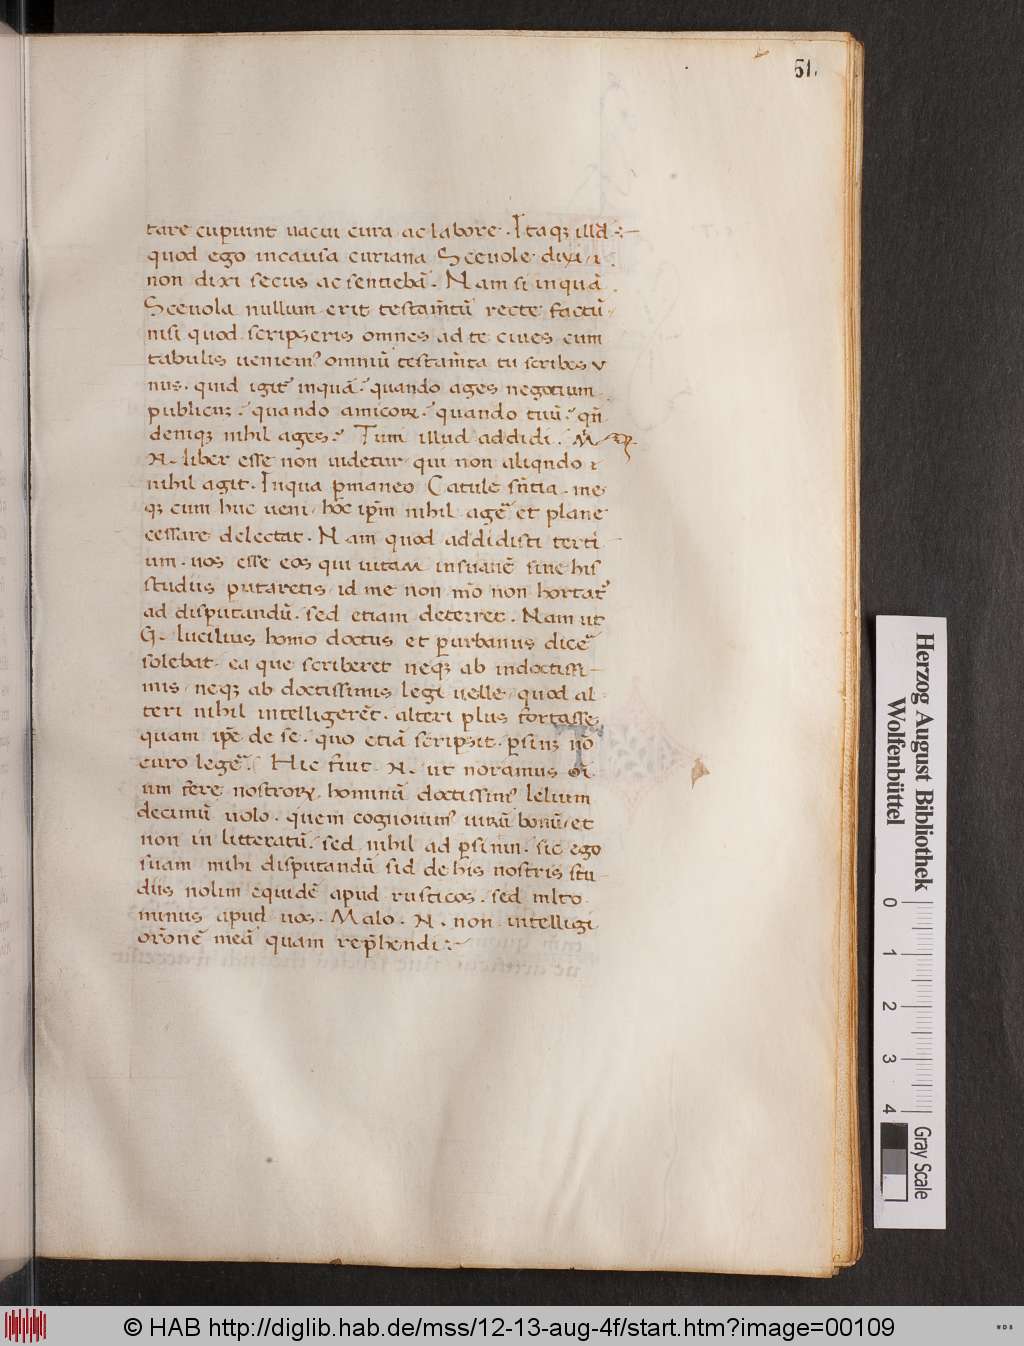 51.
tare cupiunt uacui cura ac labore. Itaqꝫ illd
quod ego incausa curiana Sceuole dixi, ĩ
non dixi secus ac sentiebã. Nam si inquã
Sceuola nullum erit testam̃tũ recte factũ,
nisi quod scripseris omnes ad te ciues cum
tabulis ueniem᾽ omniũ testam̃ta tu scribes v
nus. quid igit᾽ inquã? quando ages negotium
publicuꝫ? quando amicoꝝ? quando tuũ? qñ
deniqꝫ nihil ages? Tum illud addidi. M
N. liber esse non uidetur qui non aliqndo ĩ
nihil agit. Inqua ꝑmaneo Catule sñtia. me
qꝫ cum huc ueni, hoc ip̃m nihil agẽ et plane
cessare delectat. Nam quod addidisti terti
um. uos esse eos qui uitam insuauẽ sine his
studiis putaretis, id me non mõ non hortat᾽
ad disputandũ. sed etiam deterret. Nam ut
G. lucilius homo doctus et ꝑurbanus dicẽ
solebat. ea que scriberet neqꝫ ab indoctissi
mis, neqꝫ ab doctissimis legi uelle, quod al
teri nihil intelligerẽt. alteri plus fortasse
quam ip̃e de se. quo etiã scripsit. ꝑsiuꝫ nõ
curo legẽ. Hic fuit. N. ut noramus oĩ
um fere nostroꝝ hominũ doctissim᾽ lelium
decimũ uolo. quem cognouim᾽ uirũ bonũ, et
non in litteratũ. sed nihil ad ꝑsium. sic ego
suam mihi disputandũ sid de his nostris stu
diis nolim equidẽ apud rusticos. sed mlto
minus apud uos. Malo. N. non intelligi
or̃onẽ meã quam rep̃hendi:
Herzog August Bibliothek
Wolfenbüttel
0 1 2 3 4
Gray Scale
© HAB http://diglib.hab.de/mss/12-13-aug-4f/start.htm?image=00109